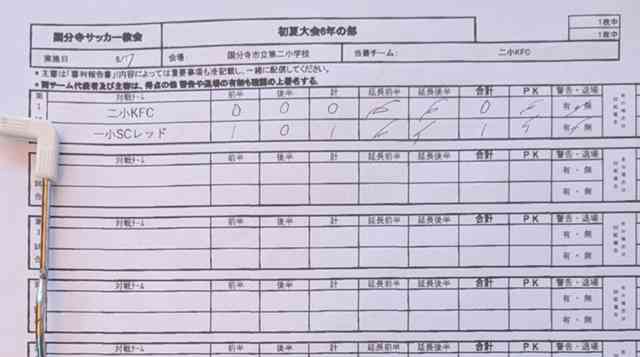 国分寺サッカー協会 初夏大会6年の部 1枚中
1枚中
実施日 6/17 会場: 国分寺市立第二小学校 当番チーム: 二小KFC
*主審は「審判報告書」内容によっては重要事項も沿記載し、一緒に配信してください。
*両チーム代表者及び主審は、得点の他 警告や退場の有無も確認の上署名する。
対戦チーム 前半 後半 計 延長前半 延長後半 合計 PK 警告・退場
二小KFC 0 0 0 0 有・無
一小SCレッド 1 0 1 1 有・無
対戦チーム 前半 後半 計 延長前半 延長後半 合計 PK 警告・退場
有・無
有・無
対戦チーム 前半 後半 計 延長前半 延長後半 合計 PK 警告・退場
有・無
有・無
対戦チーム 前半 後半 計 延長前半 延長後半 合計 PK 警告・退場
有・無
有・無
対戦チーム 前半 後半 計 延長前半 延長後半 合計 PK 警告・退場